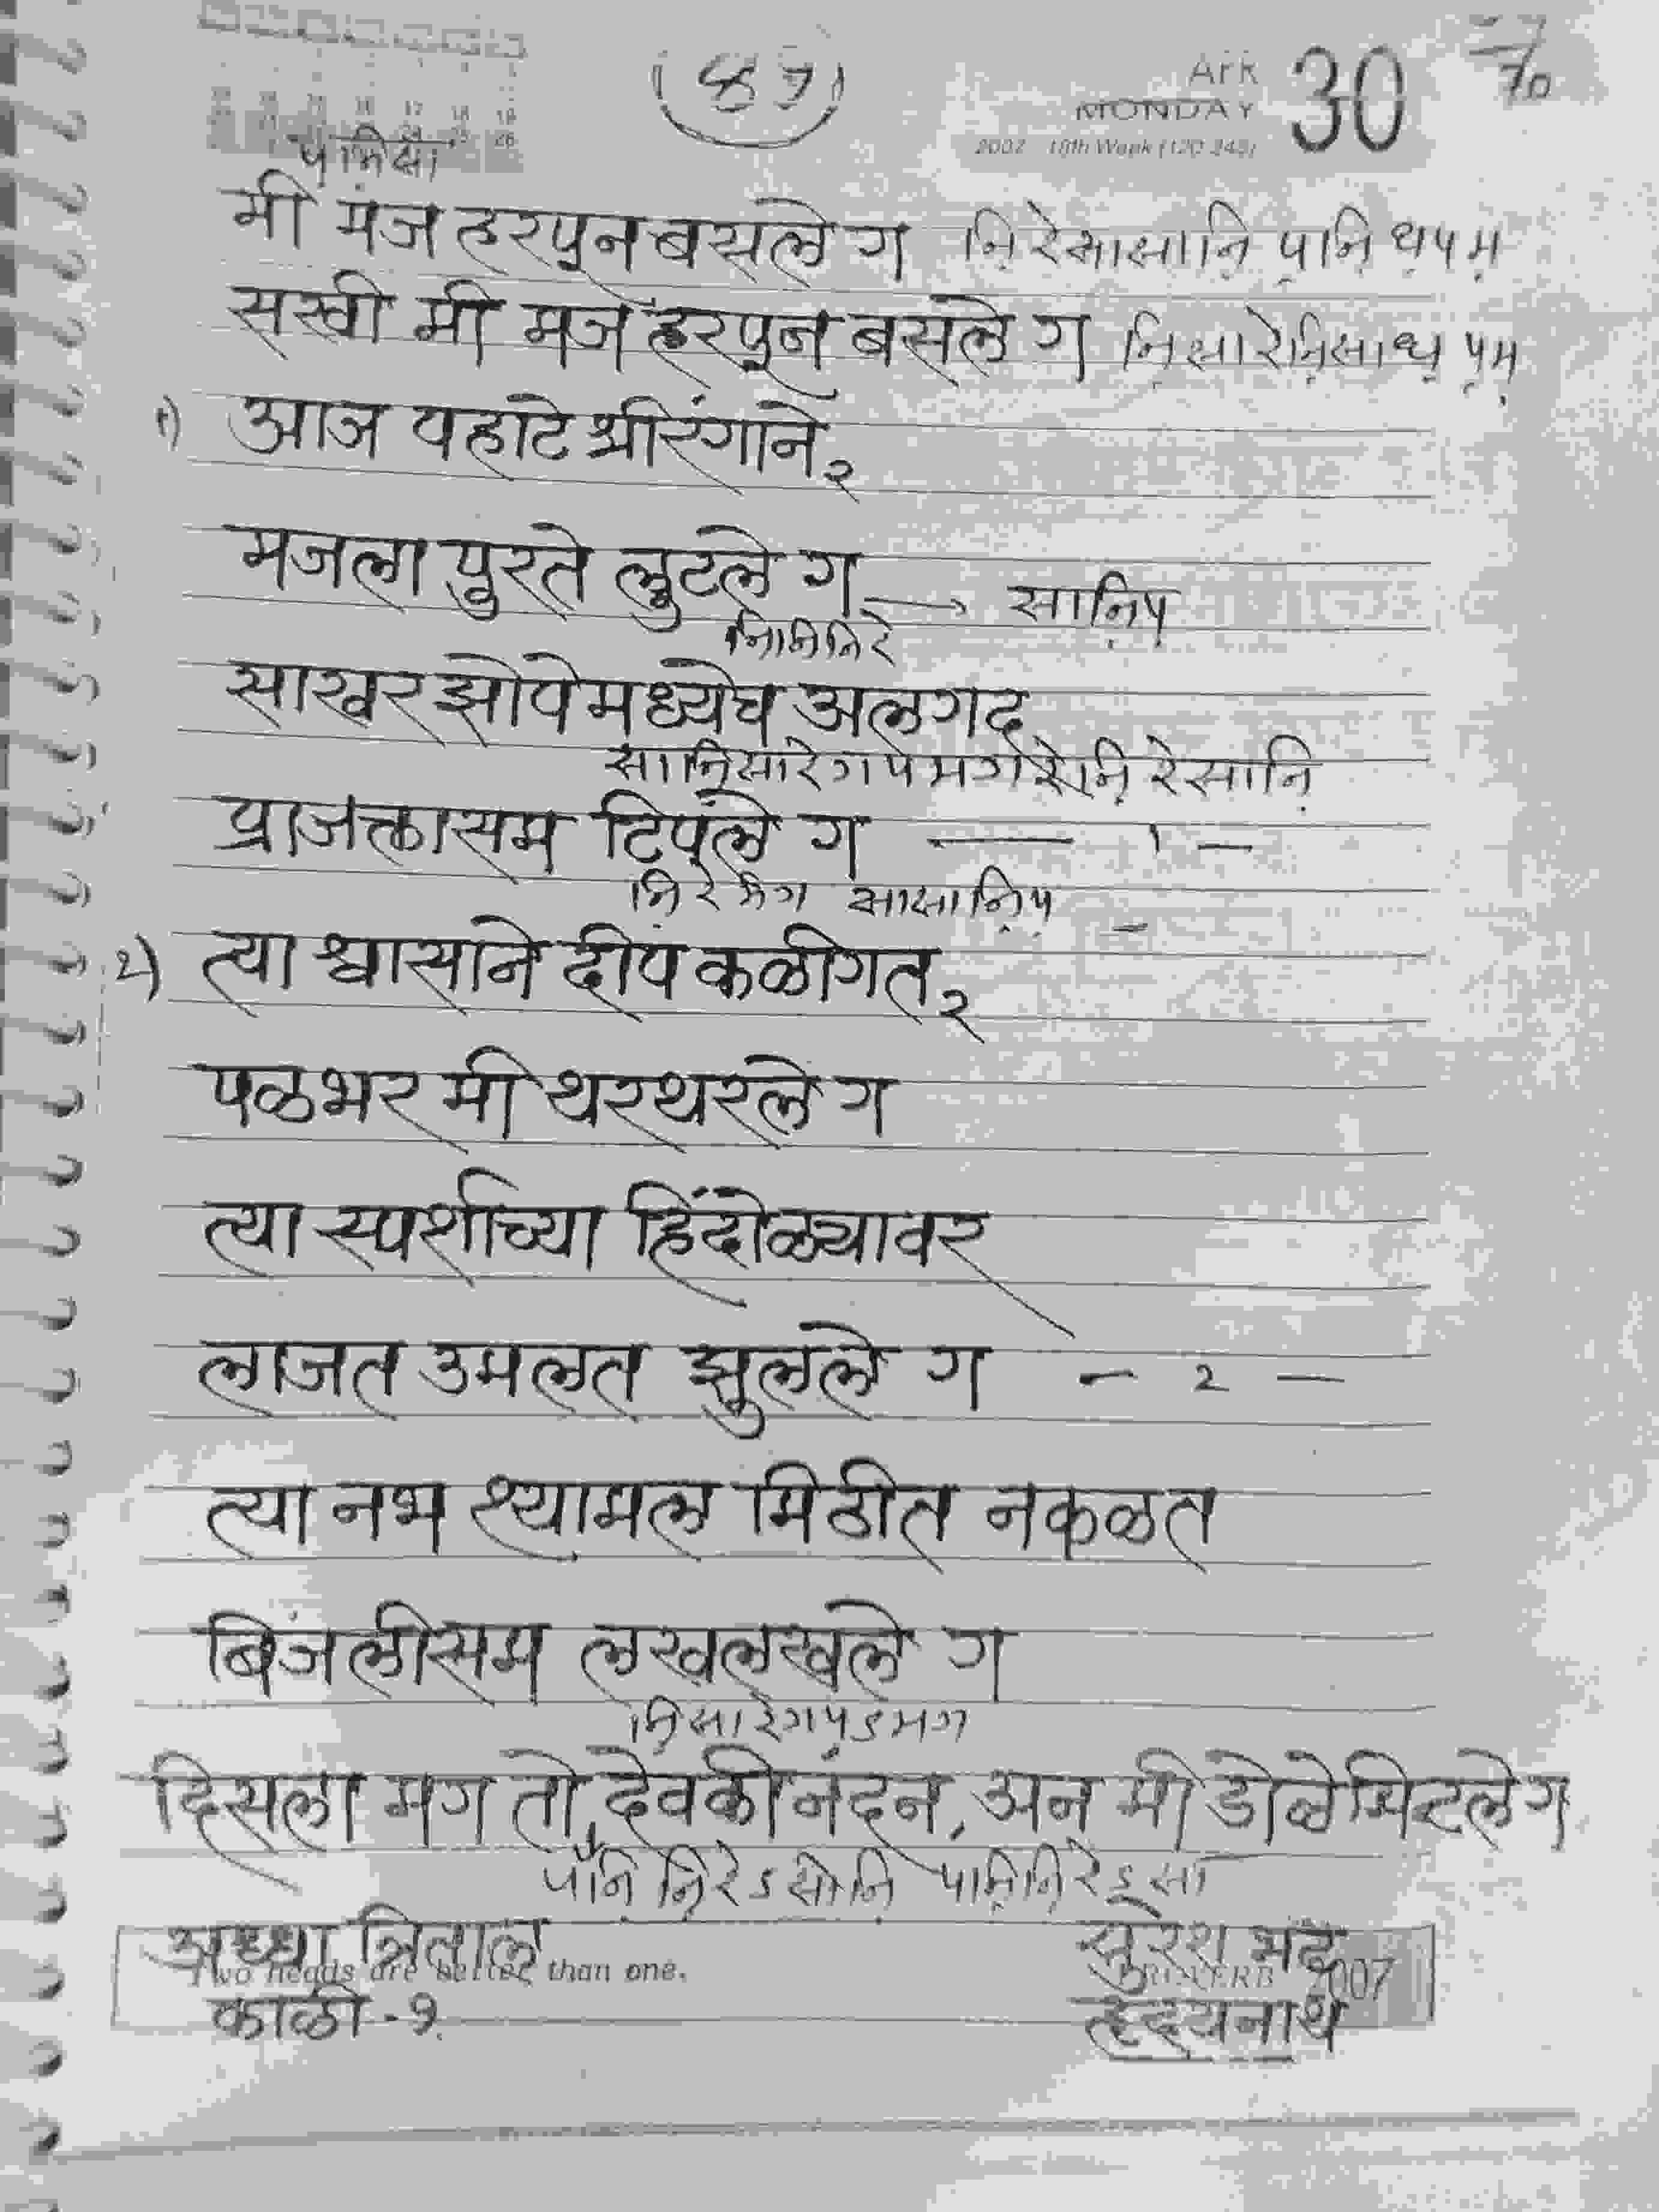 Ark
MONDAY 30
70
2007 18th Week (120-245)
मी मज हरपून बसले ग नि रे सा सा नि प नि ध प म
सखी मी मज हरपून बसले ग नि सा रे नि सा ध प म
१) आज पहाटे श्रीरंगाने २
मजला पुरते लुटले ग → सा नि प
साखर झोपेमध्येच अलगद
सा नि सा रे ग प म ग रे नि रे सा नि
प्राजक्तासम टिपले ग — १ —
नि रे म ग सा सा नि प
२) त्या श्वासाने दीप कळीगत २
पळभर मी थरथरले ग
त्या स्पर्शाच्या हिंदोळ्यावर
लाजत उमलत झुलले ग – २ –
त्या नभ श्यामल मिठीत नकळत
बिजलीसम लखलखले ग
नि सा रे ग प ऽ म ग
दिसला मग तो, देवकी नंदन, अन मी डोळे मिटले ग
अध्धा त्रिताल सुरेश भट
Two heads are better than one. PROVERB 2007
काळी - १ ह्रदयनाथ